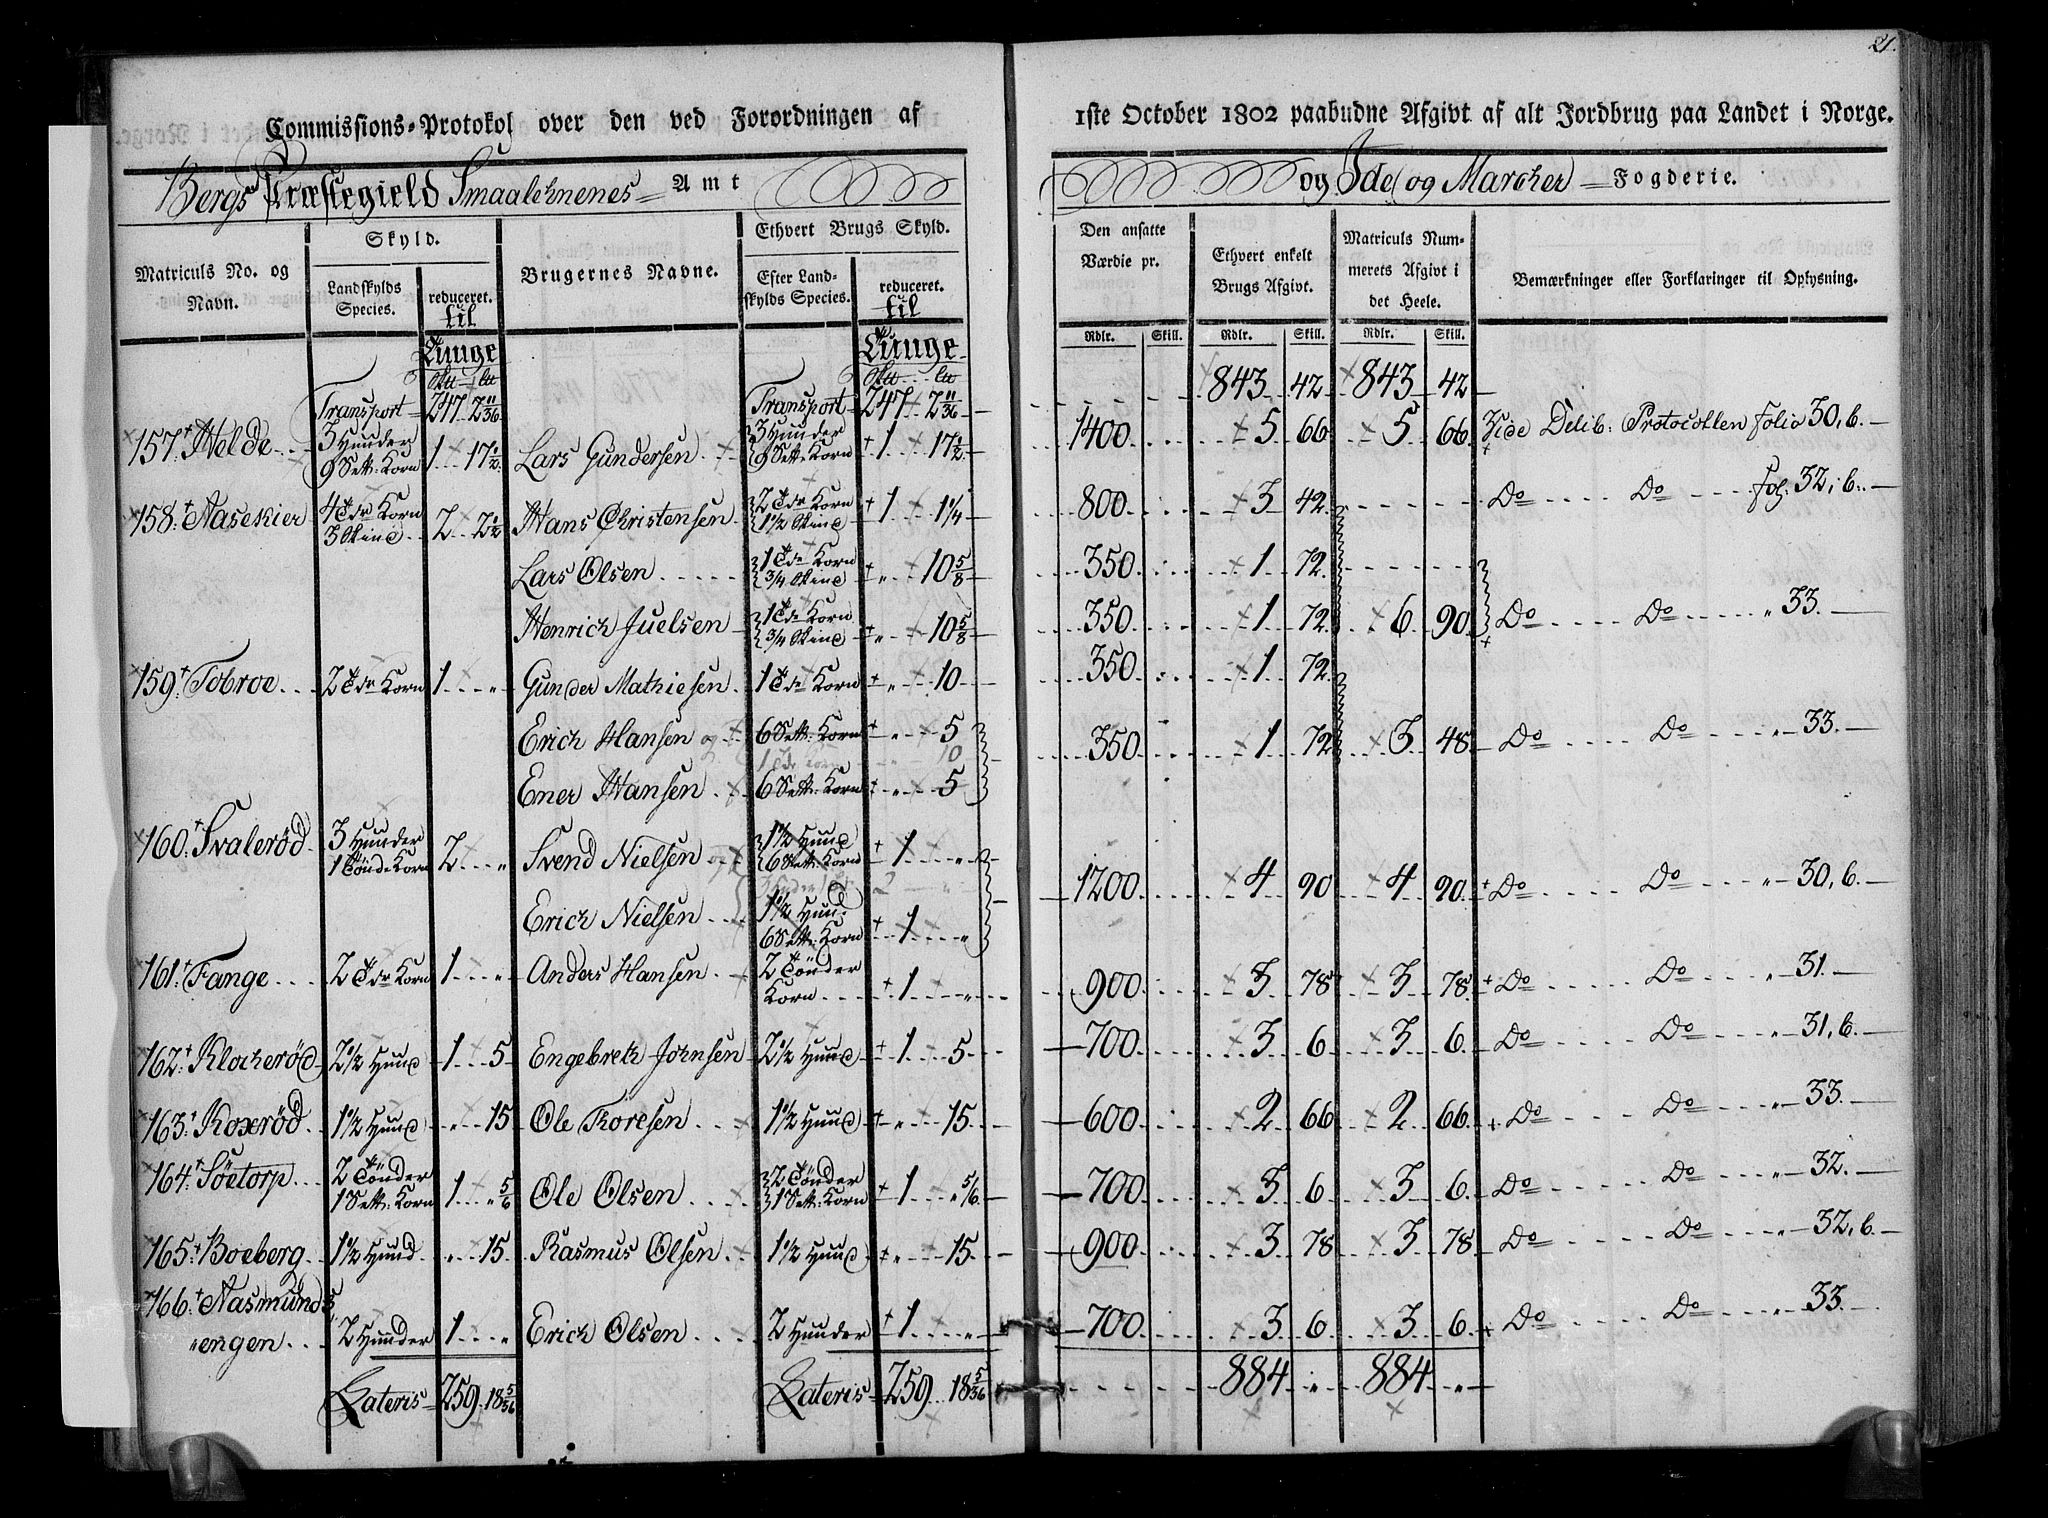 21.
Commissions-Protokol over den ved Forordningen af 1ste October 1802 paabudne Afgivt af alt Jordbrug paa Landet i Norge.
Bergs Præstegield Smaalehnenes Amt og Ide og Marcher Fogderie.
Matriculs No. og Navn. | Skyld. Landskylds Species. | reduceret. til Tunge | Brugernes Navne. | Ethvert Brugs Skyld. Efter Landskylds Species. | reduceret. til Tunge | Den ansatte Værdie pr. Rdlr. Skill. | Ethvert enkelt Brugs Afgivt. Rdlr. Skill. | Matriculs Nummerets Afgivt i det Heele. Rdlr. Skill. | Bemærkninger eller Forklaringer til Oplysning.
Transport 247 2 11/36 Transport 247 2 11/36 843 42 843 42
157 Helde 3 Hunder 9 Sett: Korn 1 17 1/2 Lars Gundersen 3 Hunder 9 Sett: Korn 1 17 1/2 1400 5 66 5 66 Vide Delib: Protocollen folio 30, b.
158 Aasekier 4 Tdr Korn 3 Skind 2 2 1/2 Hans Christensen 2 Tdr Korn 1 1/2 Skind 1 1 1/4 800 3 42 Do Do fol: 32, b.
Lars Olsen 1 Tde Korn 3/4 Skind " 10 5/8 350 1 72
Henrich Juelsen 1 Tde Korn 3/4 Skind " 10 5/8 350 1 72 6 90 Do Do " 33.
159 Tobroe 2 Tdr Korn 1 " Gunder Mathiesen 1 Tde Korn " 10 350 1 72
Erich Hansen og 6 Sett: Korn " 5 350 1 72 3 48 Do Do " 33.
1 Tde Korn 10
Ener Hansen 6 Sett: Korn " 5
160 Svalerød 3 Hunder 1 Tønde Korn 2 " Svend Nielsen og 1 1/2 Hund 6 Sett: Korn 1 " 1200 4 90 4 90 Do Do " 30, b.
Erich Nielsen 1 1/2 Hund 6 Sett: Korn 1 "
161 Fange 2 Tdr Korn 1 " Anders Hansen 2 Tønder Korn 1 " 900 3 78 3 78 Do Do " 31.
162 Klocherød 2 1/2 Hund 1 5 Engebreth Johnsen 2 1/2 Hund 1 5 700 3 6 3 6 Do Do " 31, b.
163 Koxerød 1 1/2 Hund " 15 Ole Thoresen 1 1/2 Hund " 15 600 2 66 2 66 Do Do " 33.
164 Søetorp 2 Tønder 1 Sett: Korn 1 " 5/6 Ole Olsen 2 Tønder 1 Sett: Korn 1 " 5/6 700 3 6 3 6 Do Do " 32.
165 Boeberg 1 1/2 Hund " 15 Rasmus Olsen 1 1/2 Hund " 15 900 3 78 3 78 Do Do " 32, b.
166 Aasmunds engen 2 Hunder 1 " Erich Olsen 2 Hunder 1 " 700 3 6 3 6 Do Do " 33.
Lateris 259 18 5/36 Lateris 259 18 5/36 884 " 884 "